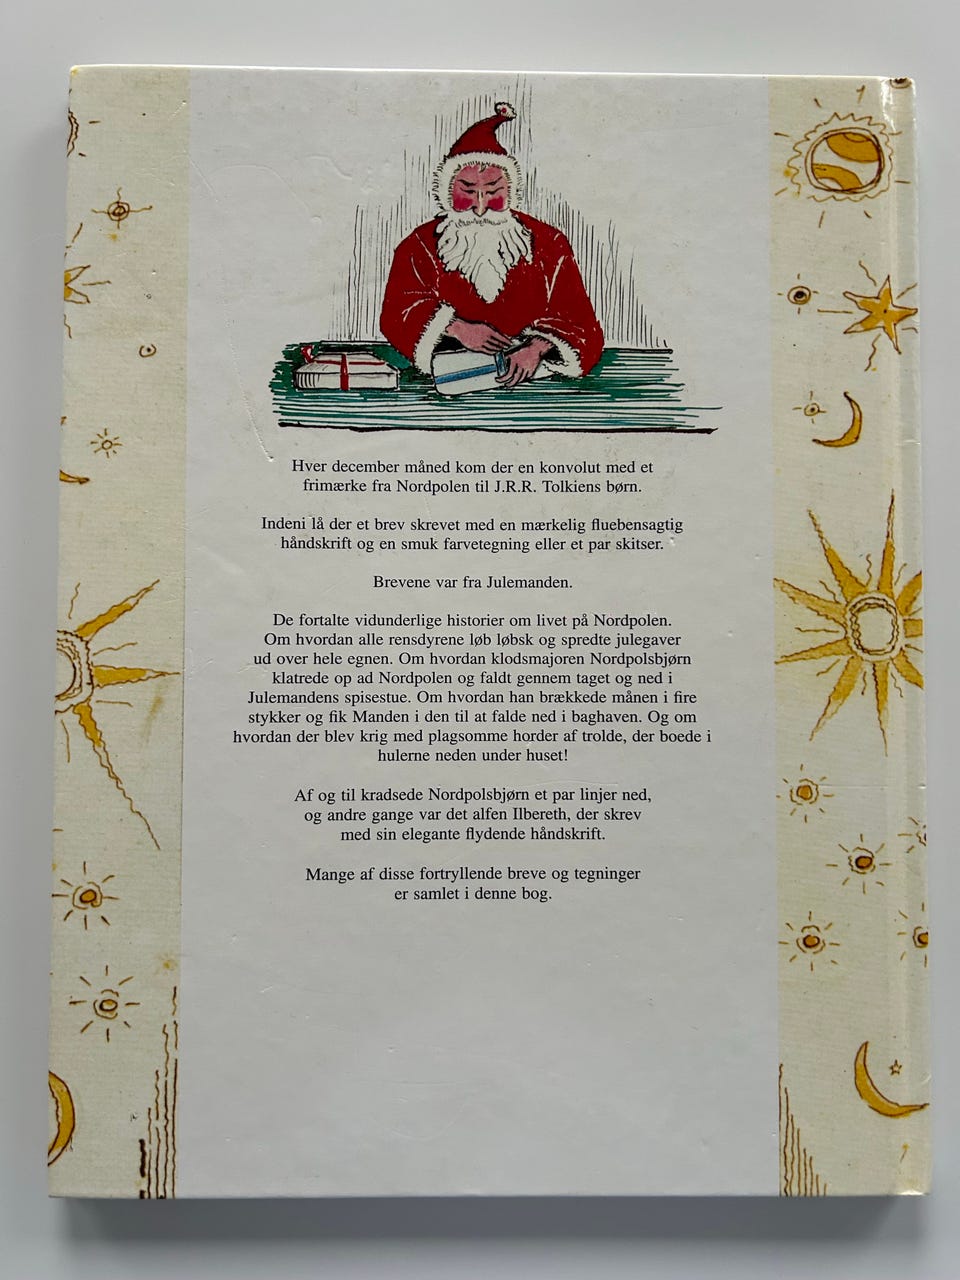 Hver december måned kom der en konvolut med et
frimærke fra Nordpolen til J.R.R. Tolkiens børn.
Indeni lå der et brev skrevet med en mærkelig fluebensagtig
håndskrift og en smuk farvetegning eller et par skitser.
Brevene var fra Julemanden.
De fortalte vidunderlige historier om livet på Nordpolen.
Om hvordan alle rensdyrene løb løbsk og spredte julegaver
ud over hele egnen. Om hvordan klodsmajoren Nordpolsbjørn
klatrede op ad Nordpolen og faldt gennem taget og ned i
Julemandens spisestue. Om hvordan han brækkede månen i fire
stykker og fik Manden i den til at falde ned i baghaven. Og om
hvordan der blev krig med plagsomme horder af trolde, der boede i
hulerne neden under huset!
Af og til kradsede Nordpolsbjørn et par linjer ned,
og andre gange var det alfen Ilbereth, der skrev
med sin elegante flydende håndskrift.
Mange af disse fortryllende breve og tegninger
er samlet i denne bog.